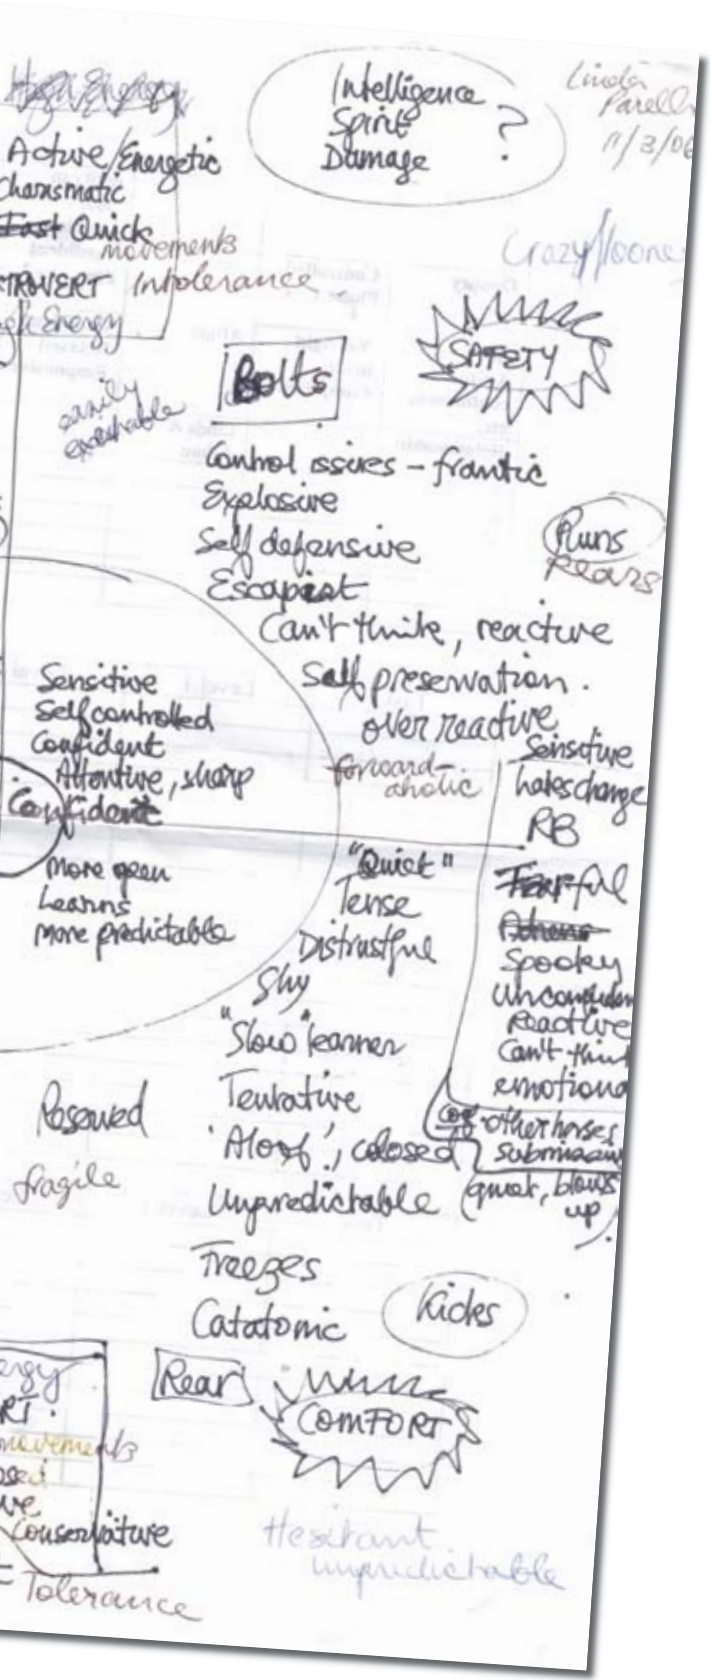 High Energy
Intelligence
Spirit ?
Damage
Linda
Parelli
11/3/06
Active/Energetic
Charismatic
Fast Quick
movements
Intolerance
Crazy/loone
Energy
SAFETY
Bolts
easily
excitable
Control issues - frantic
Explosive
Self defensive
Escapist
Runs
Rears
Can't think, reactive
Self preservation.
over reactive
forward-
aholic
Sensitive
Self controlled
Confident
Attentive, sharp
Confident
More open
Learns
More predictable
Sensitive
hates change
RB
Fearful
Spooky
Unconfiden
Reactive
Can't think
emotiona
other horses
submissive
(quiet, blows
up)
"Quiet"
Tense
Distrustful
Shy
"Slow" learner
Tentative
'Aloof', closed
Unpredictable
Freezes
Catatonic
Kicks
Reserved
fragile
Rear
COMFORT
ergy
RT.
movements
osed
ive
Conservative
Tolerance
Hesitant
unpredictable